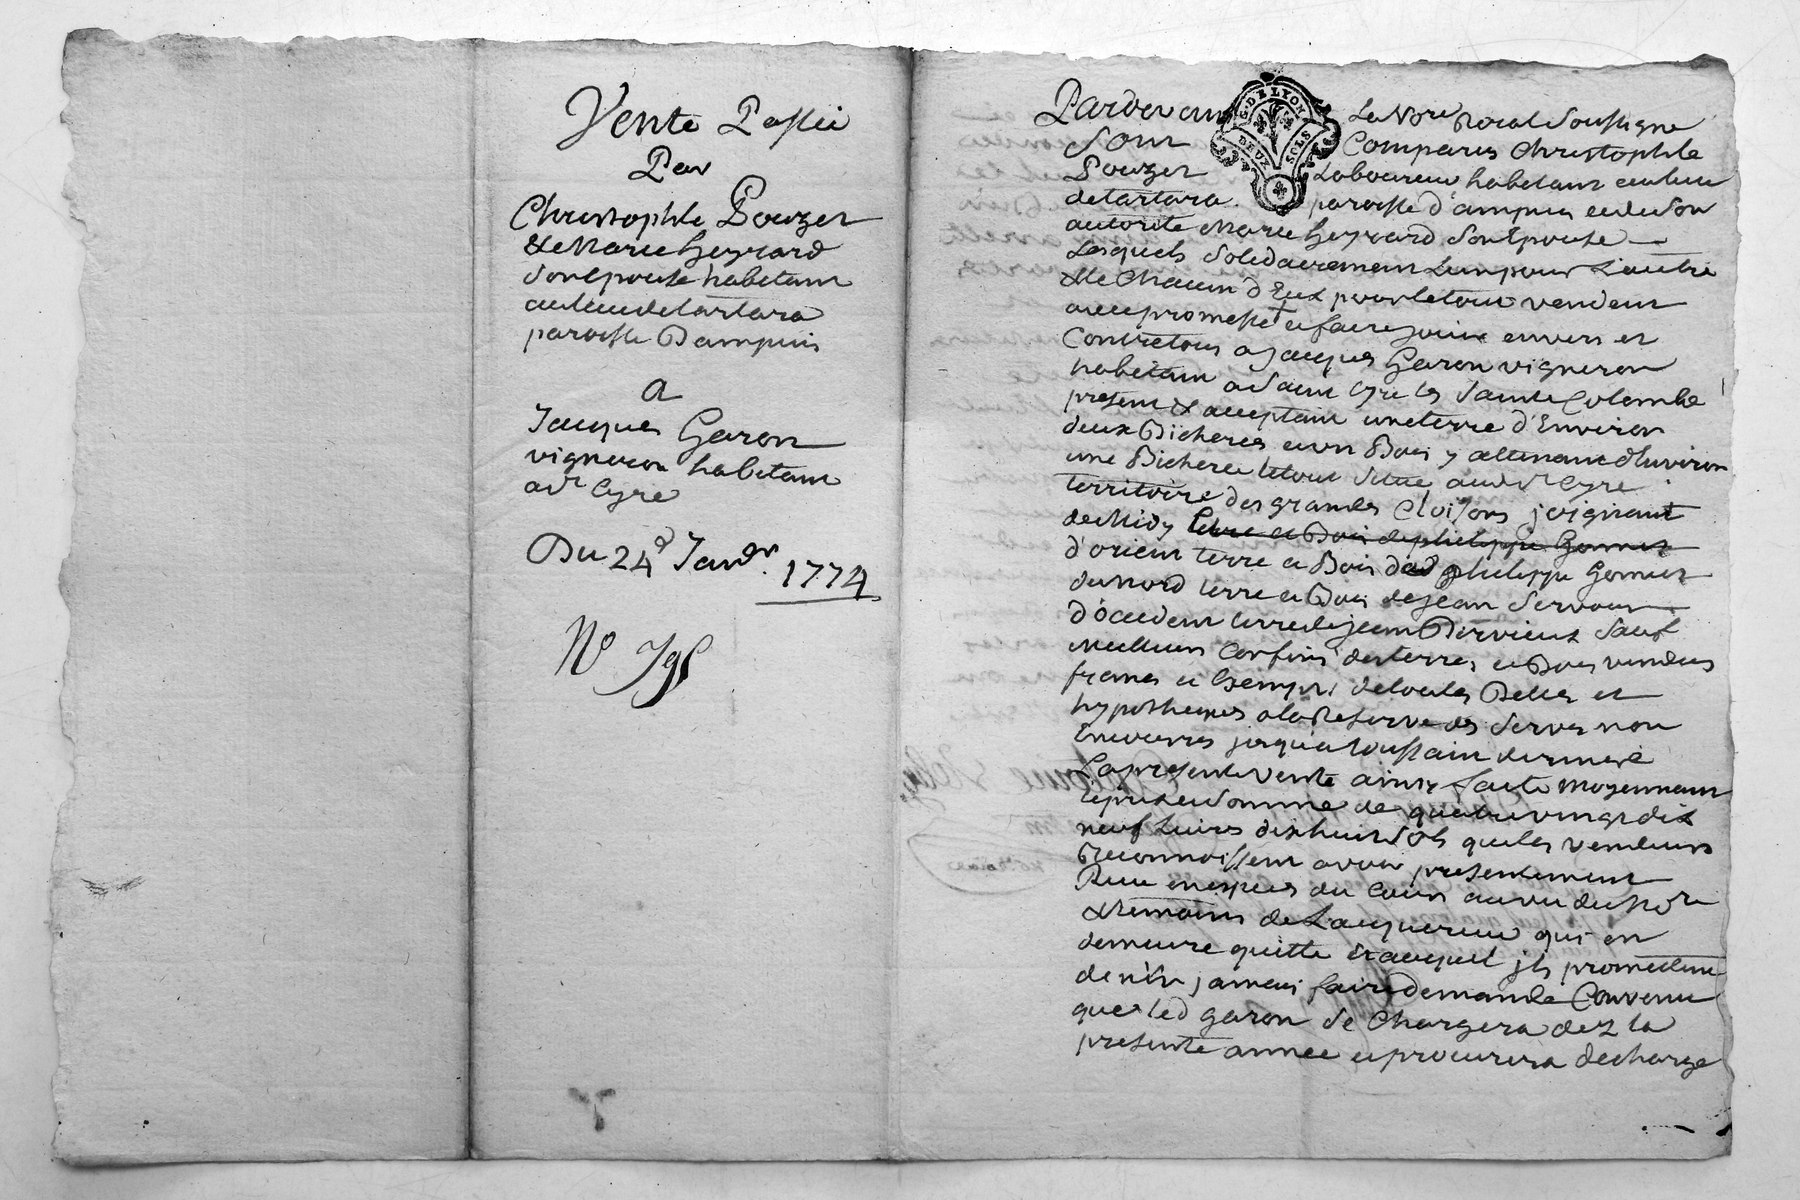 Vente Passée
Par
Christophle Pouzet
& Marie Heyrard
Son Epouse habitans
au lieu de tartara
paroisse Dampuis
a
Jacques Garon
vigneron habitant
a St Cyre
Du 24e Janvr. 1774
No
Pardevant Le Nore Roial Soussigné
G. DE LYON
DEUX SOLS
Comparus Christophle
Pouzet Laboureur habitant au lieu
de tartara. paroisse d'ampuis et de Son
autorité Marie Heyrard Son Epouse
Lesquels Solidairement L'un pour L'autre
& le Chacun d'Eux pour le tout vendent
avec promesse et faire jouir envers et
Contre tous a Jacques Garon vigneron
habitant a Saint Cyre les Sainte Colombe
present & acceptant une terre d'Environ
deux Bicherées et un Bois y attenant d'Environ
une Bicherée le tout Situé audt St Cyre
territoire des grandes Cloisons joignant
de Midy terre et Bois de philippe Gonnet
d'orient terre et Bois dud philippe Gonnet
du Nord terre et Bois de Jean Servour
d'occident terre de Jean Dervieux Sauf
Meilleurs Confins des terres et Bois vendus
francs et Exempts de toutes Dettes et
hypotheques a la Reserve des Servis non
Encourus jusqu'a toussaint derniere
La presente Vente ainsy faite moyennant
le prix et Somme de quatre vingt dix
neuf Livres dix huit Sols que les vendeurs
Reconnoissent avoir presentement
Reçu en especes du Cours au vu du Nore
& temoins de L'acquereur qui en
demeure quitte et auquel ils promettent
de n'En jamais faire demande Convenu
que led Garon Se Chargera dez la
presente année et procurera decharge